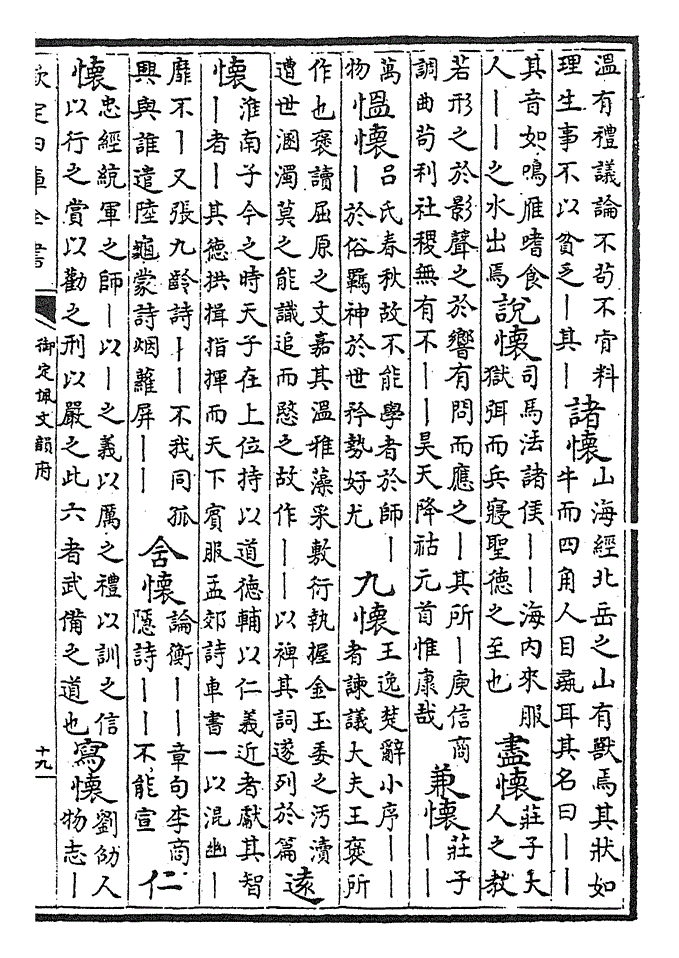 溫有禮議論不苟不肯料
理生事不以貧乏丨其丨
諸懷
山海經北岳之山有獸焉其狀如
牛而四角人目彘耳其名曰丨丨
其音如鳴雁嗜食
人丨丨之水出焉
說懷
司馬法諸侯丨丨海內來服
獄弭而兵寢聖德之至也
盡懷
莊子大
人之教
若形之於影聲之於響有問而應之丨其所丨庾信商
調曲苟利社稷無有不丨丨昊天降祜元首惟康哉
兼懷
莊子
丨丨
萬
物
慍懷
呂氏春秋故不能學者於師丨
丨於俗羈神於世矜勢好尤
九懷
王逸楚辭小序丨丨
者諫議大夫王褒所
作也褒讀屈原之文嘉其溫雅藻采敷衍執握金玉委之汚瀆
遭世溷濁莫之能識追而愍之故作丨丨以裨其詞遂列於篇
遠
懷
淮南子今之時天子在上位持以道德輔以仁義近者獻其智
丨者丨其德拱揖指揮而天下賓服孟郊詩車書一以混幽丨
靡不丨又張九齡詩丨丨不我同孤
興與誰遣陸龜蒙詩烟蘿屏丨丨
含懷
論衡丨丨章句李商
隱詩丨丨不能宣
仁
懷
忠經統軍之師丨以丨之義以厲之禮以訓之信
以行之賞以勸之刑以嚴之此六者武備之道也
寫懷
劉劭人
物志丨
欽定四庫全書
御定佩文韻府
十九